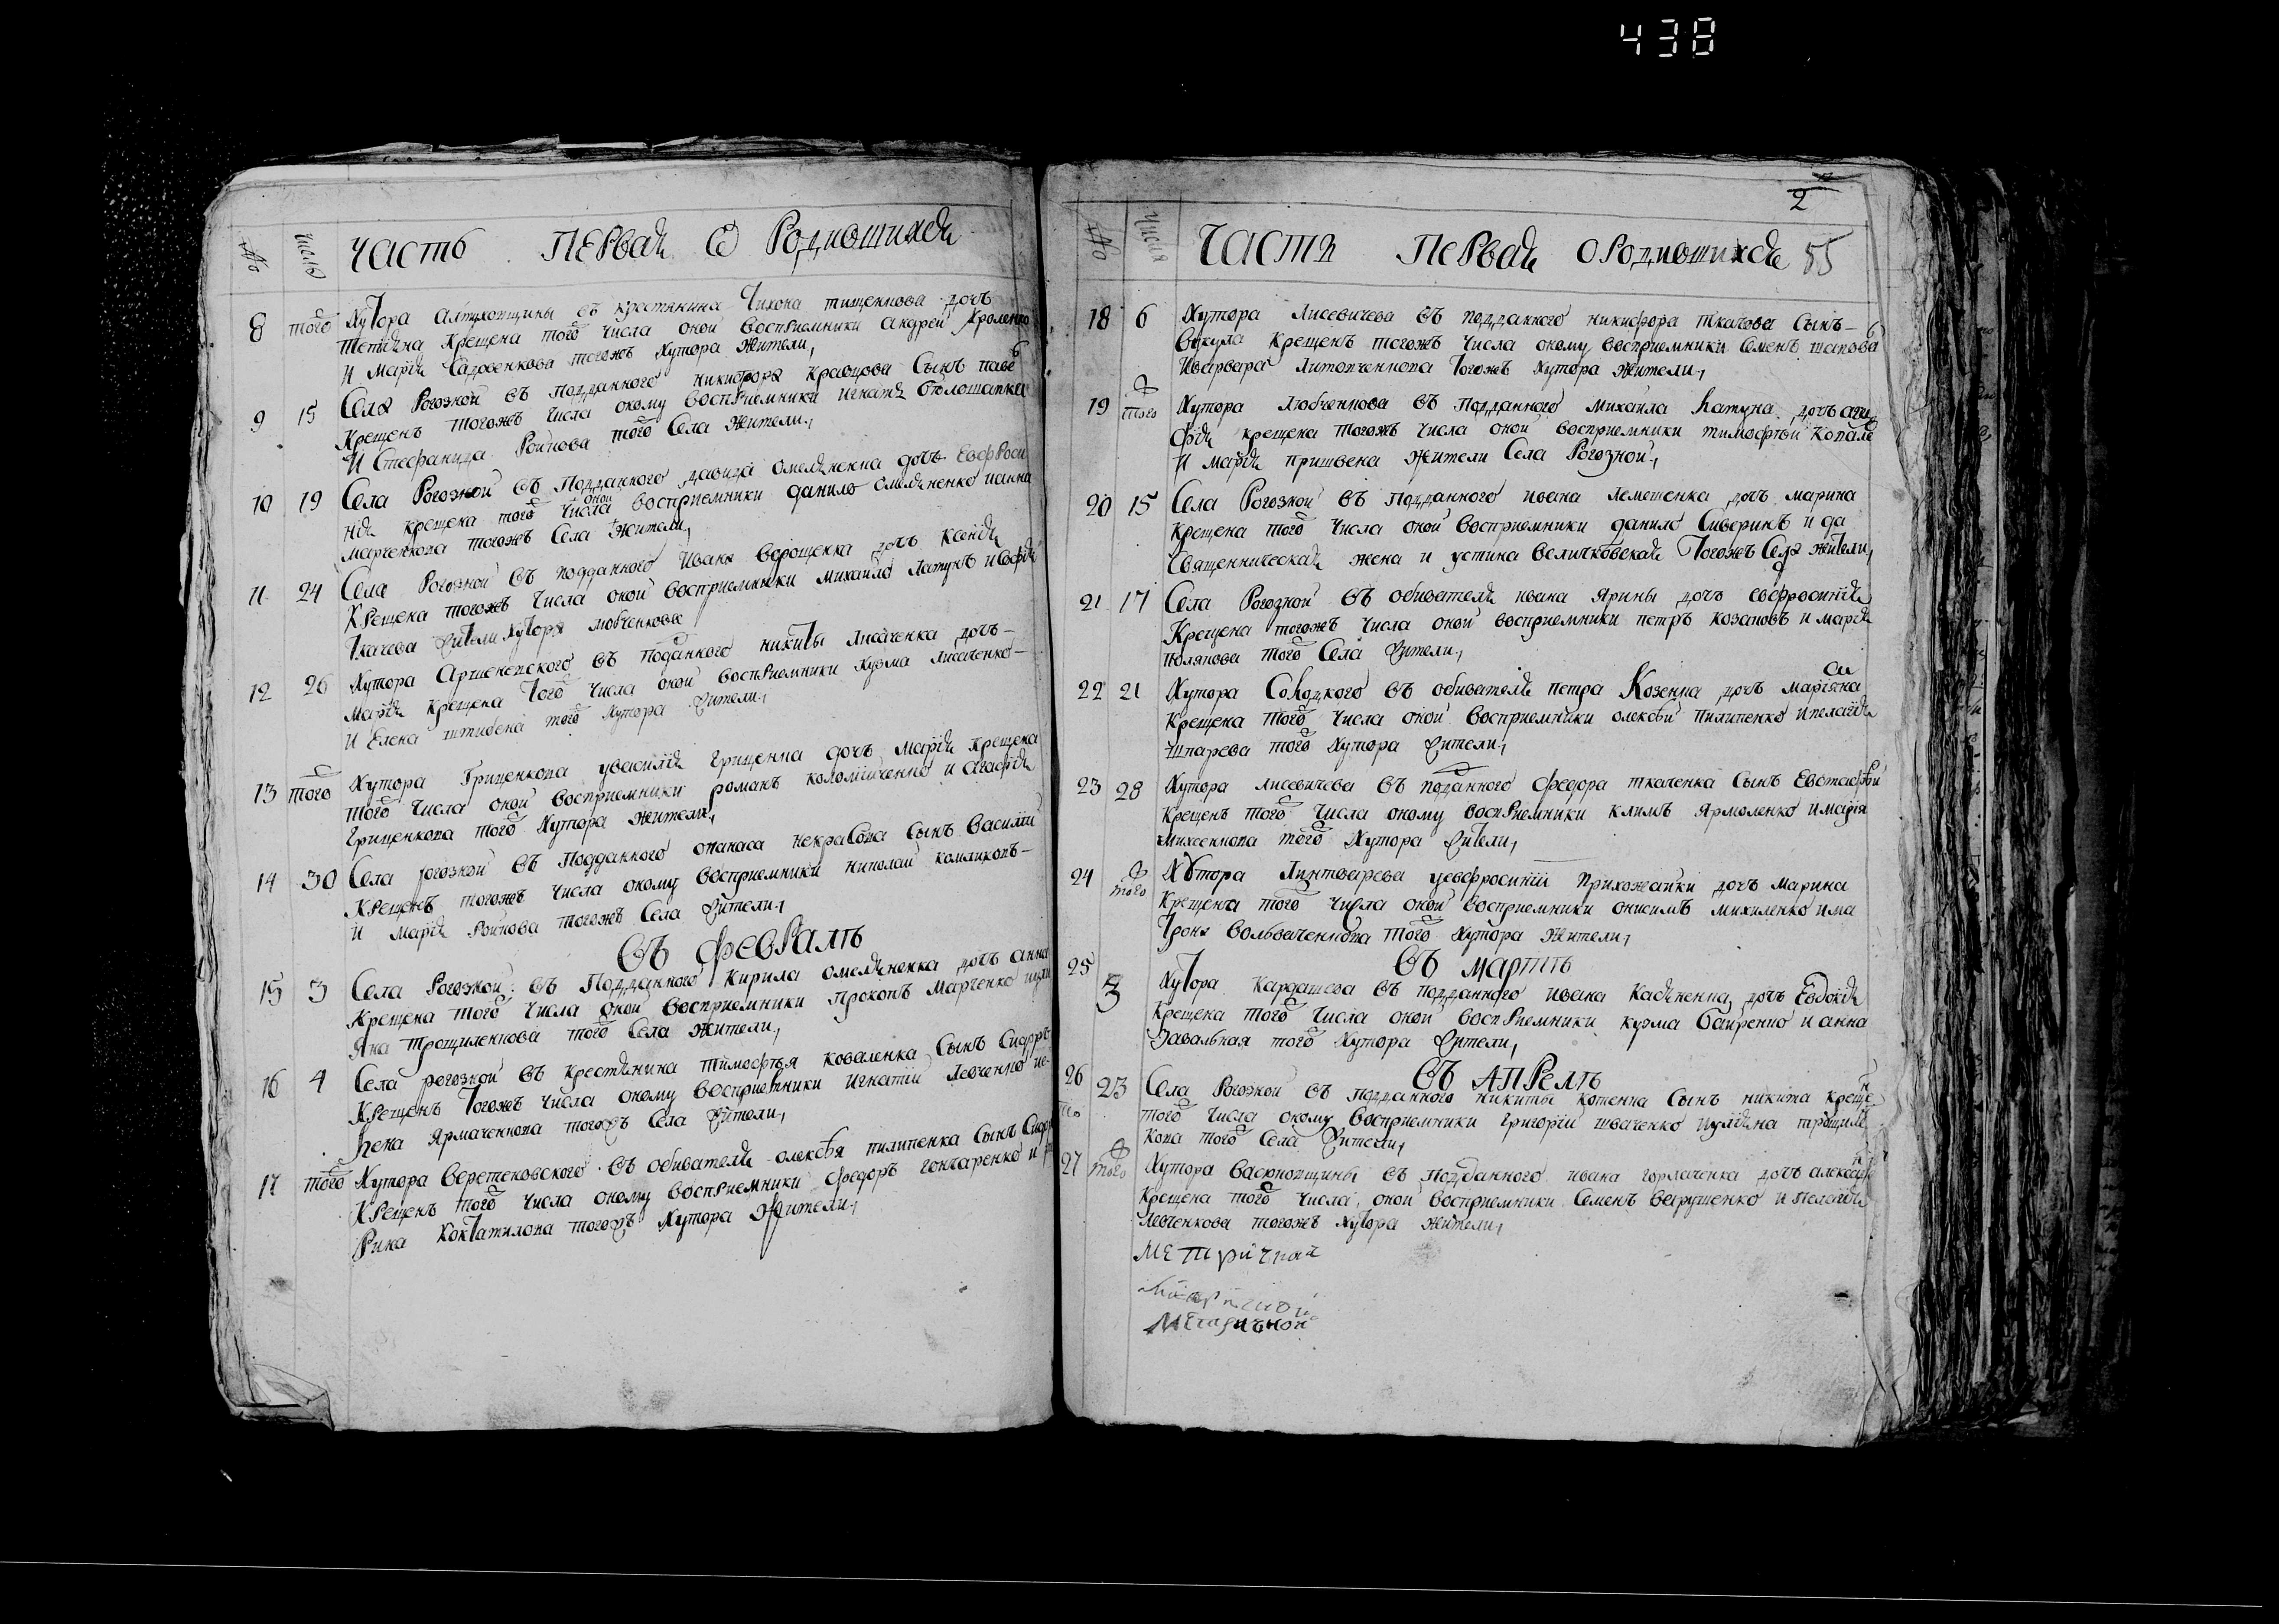 438
№ числа ЧАСТЬ ПЕРВАЯ О РОДИВШИХСЯ
8 тогож Хутора Алтуховщины въ крестянина Тихона тищенкова дочъ
Татияна Крещена того числа оной восприемники андрей Кроленко
И Мария Садовенкова тогожъ Хутора Жители,
9 15 Села Рогозной въ подданного никифора Кравцова Сынъ паве
Крещенъ тогожъ числа оному восприемники игнатъ
И Стефанида Роикова того Села жители,
10 19 Села Рогозной въ Подданного давида омеляненка дочъ Евфроси
ния крещена того числа оной восприемники данило омеляненко ианна
марченкова тогожъ Села жители,
11 24 Села Рогозной въ подданного Ивана Верощенка дочъ Ксения
Крещена тогожъ числа оной восприемники михайло латунъ исофия
Ткачева жители хутора любченкова
12 26 Хутора въ поданного никиты лисаченка дочъ
Мария крещена того числа оной восприемники кузма лисаченко
И Елена того Хутора жители,
13 тогож Хутора Грищенкова увасилия грищенка дочъ Мария крещена
того числа оной восприемники романъ коломийченко и агафия
Грищенкова того Хутора жители,
14 30 Села рогозной въ Подданного опанаса некрасова Сынъ Василий
Крещенъ тогожъ числа оному восприемники николай
И Мария Роикова тогожъ Села жители,
Въ ФЕВРАЛѢ
15 3 Села Рогозной въ Подданного Кирила омеляненка дочъ анна
Крещена того числа оной восприемники Прокопъ Марченко иули
яна трощиленкова того Села жители,
16 4 Села рогозной въ крестянина тимофѣя коваленка Сынъ Сидоръ
Крещенъ тогожъ числа оному восприемники Игнатий Левченко ие
лена Ярмаченкова тогожъ Села жители,
17 тогож Хутора веретеновского въ обивателя олексѣя пилипенка Сынъ
Крещенъ того числа оному восприемники федоръ гончаренко и
рина тогожъ Хутора жители,
2
№ числа ЧАСТЬ ПЕРВАЯ О РОДИВШИХСЯ 55
18 6 Хутора Лисевичева въ подданного никифора ткачова Сынъ
Вукула Крещенъ тогожъ числа оному восприемники Семенъ шапова
Иварвара тогожъ Хутора жители,
19 тогож Хутора Любченкова въ Подданного михайла латуна дочъ ага
фия крещена тогожъ числа оной восприемники тимофѣй
И мария жители Села Рогозной,
20 15 Села Рогозной въ подданного ивана лемешенка дочъ марина
крещена того числа оной восприемники данило Сиверинъ и да
Священническая жена и устина величковская тогожъ Села жители,
21 17 Села Рогозной въ обивателя ивана ярины дочъ евфросиния
Крещена тогожъ числа оной восприемники петръ козаповъ и мария
полякова того Села жители,
22 21 Хутора въ обивателя петра Козенка дочъ мария
Крещена того числа оной восприемники олексѣй пилипенко ипелагия
того Хутора жители,
23 28 Хутора лисевичева въ поданного федора ткаченка Сынъ Евстафѣй
Крещенъ того числа оному восприемники климъ Ярмоленко имария
михеенкова того Хутора жители,
24 тогож Хутора Линтварева уевфросинии Прихожайки дочъ марина
Крещена того числа оной восприемники онисимъ михиленко има
трона того Хутора жители,
Въ МАРТѢ
25 3 Хутора Кардашева въ подданного ивана Касяненка дочъ Евдокия
Крещена того числа оной восприемники кузма байренко и анна
Завальная того Хутора жители,
Въ АПРЕЛѢ
26 23 Села Рогозной въ подданного никиты котенка Сынъ никита креще
того числа оному восприемники григорий шваченко иулияна трощиле
кова того Села жители,
27 тогож Хутора васюковщины въ подданного ивана дочъ алексан
Крещена того числа оной восприемники Семенъ и пелагия
левченкова тогожъ хутора жители,
МЕтричная
МЕтричной